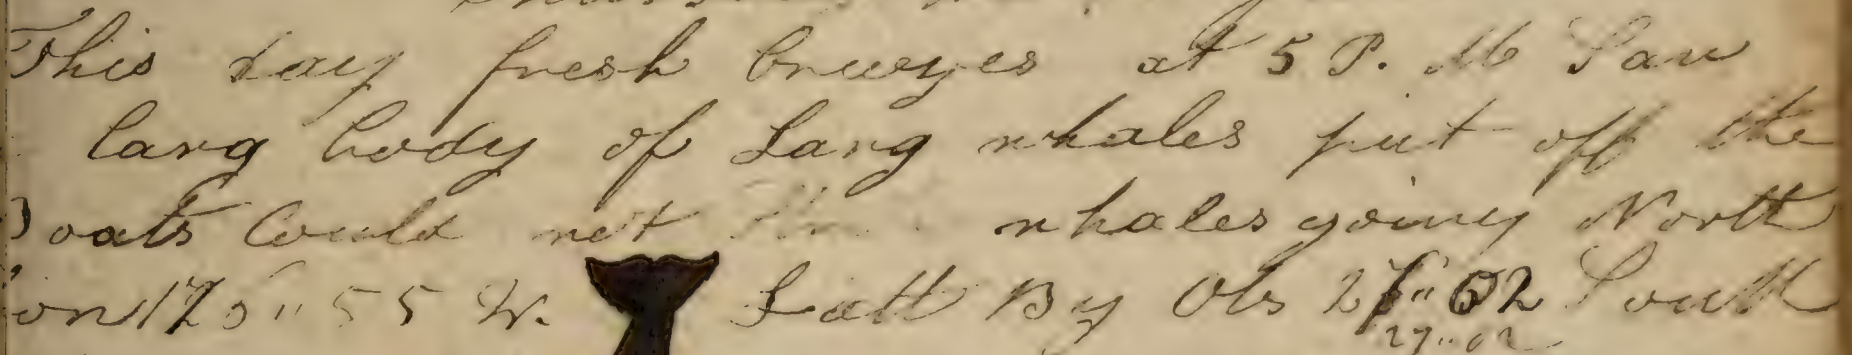 This day fresh breezes at 5 P. M Saw
larg body of Larg whales put off the
Boats Could not whales going North
Lon 175"55 W. Latt By Obs 27"02 South
27"02